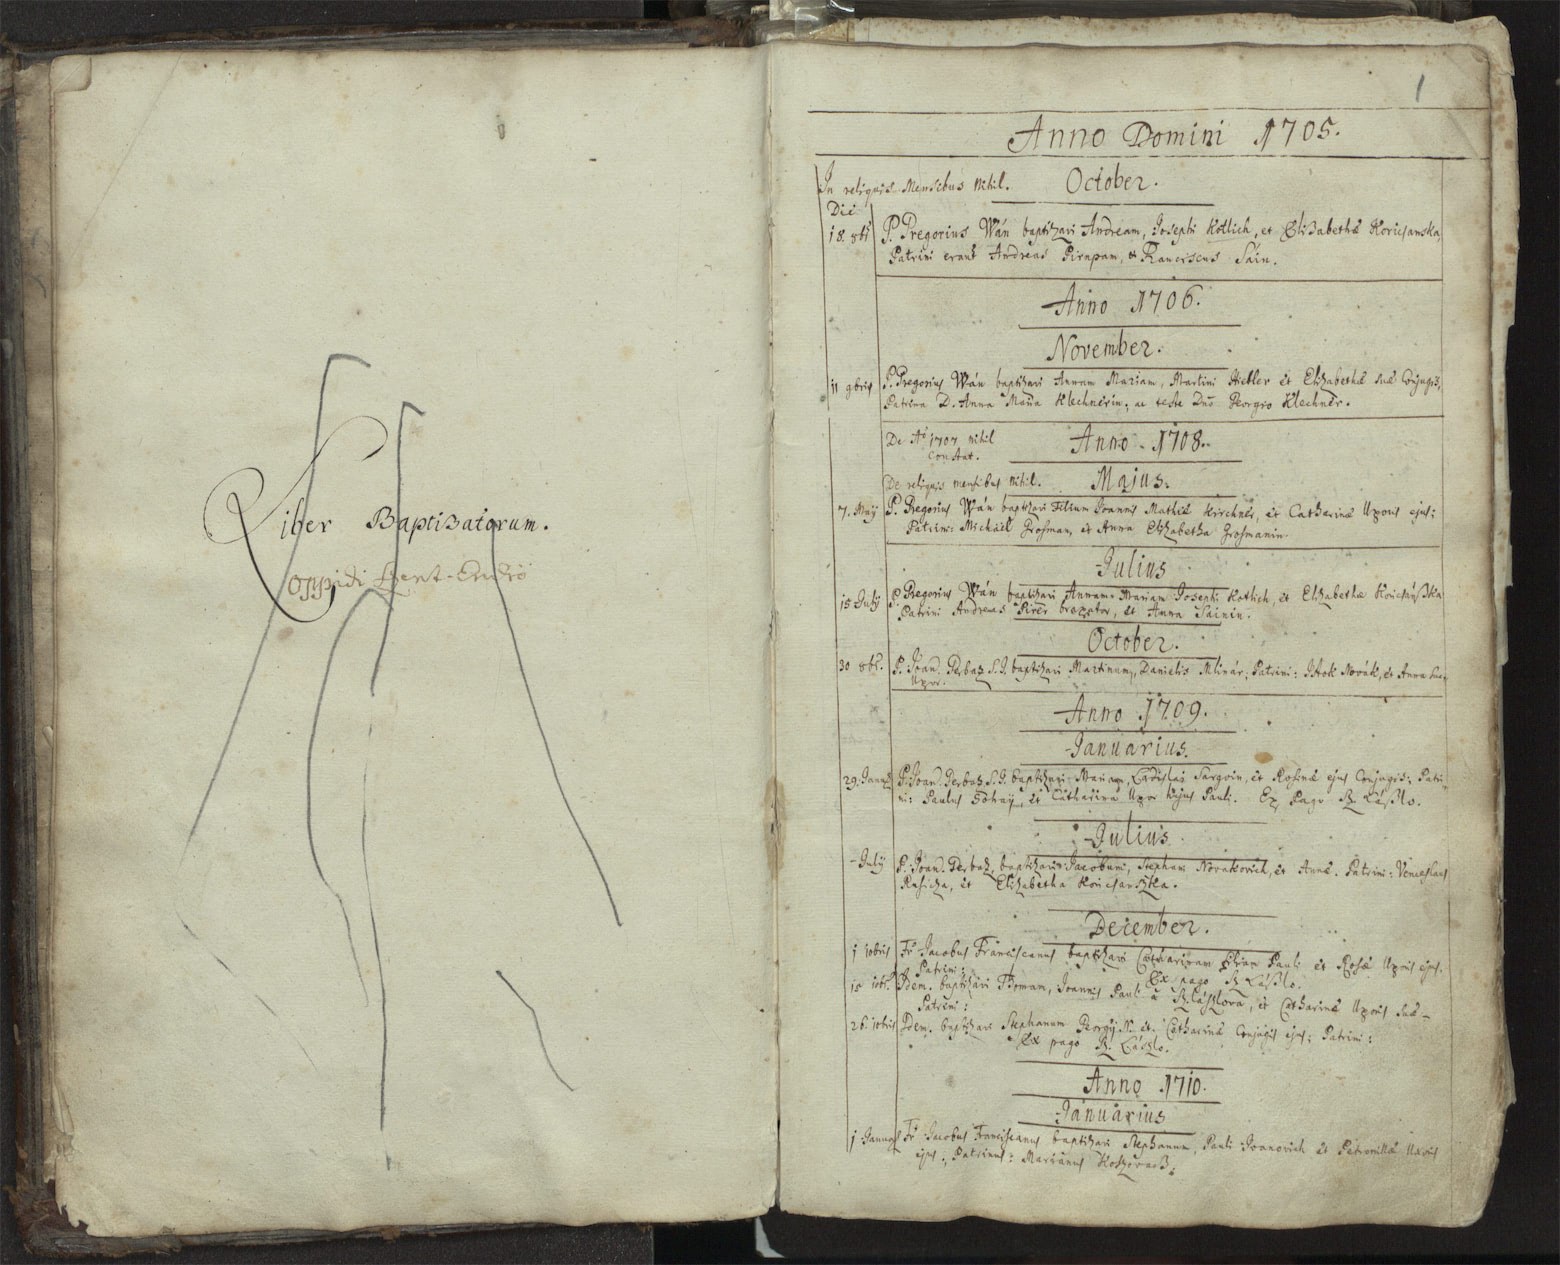 Liber Baptizatorum.
Oppidi Szent-Endrö
1
Anno Domini 1705.
In reliquis Mensibus nihil. October.
Die
18. 8bris P. Gregorius Wán baptizavi Andream, Josephi Kotlich, et Elisabethæ
Patrini erant Andreas et Franciscus Sain.
Anno 1706.
November.
11 9bris P. Gregorius Wán baptizavi Annam Mariam, Martini et Elizabethæ suæ Conjugis,
Patrina D. Anna Maria Klechnerin, ac teste Dno Georgio Klechner.
De Ao 1707 nihil Anno 1708.
Constat.
De reliquis mensibus nihil. Majus.
7. May P. Gregorius Wán baptizavi Filium Joannis Mathiæ Kirchner, et Catharinæ Uxoris ejus;
Patrini Michael Grosman, et Anna Elizabetha Grosmanin
Julius
15 July P. Gregorius Wán baptizavi Annam Mariam Josephi Kotlich, et Elizabethæ
Patrini Andreas et Anna Sainin.
October.
30 8br. P. Joan. Gerbatz S.J. baptizavi Martinum, Danielis Mlinár, Patrini: Novák, et Anna sua
Uxor.
Anno 1709.
Januarius.
29. P. Joan. Gerbatz S.J. baptizavi Mariam, Ladislai et Rosinæ ejus Conjugis: Patri-
ni: Paulus et Catharina Uxor hujus Pauli. Ex Pago Sz. László.
Julius
- July P. Joan. Gerbatz, baptizavi Jacobum, Stephani Novakovich, et Annæ. Patrini: Venceslaus
et Elizabetha
December.
1 10bris Fr. Jacobus Franciscanus baptizavi Catharinam filiam Pauli et Rosæ Uxoris ejus.
Patrini: Ex pago Sz László.
15 10br. Idem. baptizavi Thomam, Joannis Pauli et Catharinæ Uxoris suæ
Patrini:
26. 10bris Idem. baptizavi Stephanum Georgij N. et Catharinæ Conjugis ejus; Patrini:
Ex pago Sz. László.
Anno 1710.
Januarius
1 Fr. Jacobus Franciscanus baptizavi Stephanum, Pauli Ivanovich et Petronillæ Uxoris
ejus. Patrinus: Marianus